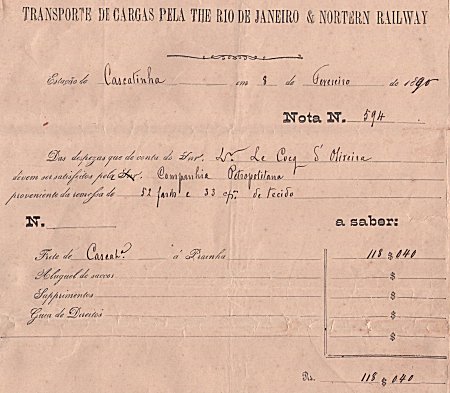 TRANSPORTE DE CARGAS PELA THE RIO DE JANEIRO & NORTERN RAILWAY
Estação de Cascatinha em 8 de Fevereiro de 1890
Nota N. 594
Das despezas que de conta do Snr. Le Cocq d'Oliveira
devem ser satisfeitos pela Snr. Companhia Petropolitana
proveniente da remessa de 52 fards e 33 de tecido
N. a saber:
Frete de Cascatª á Prainha 118 $ 040
Aluguel de saccos $
Supprimentos $
Guia de Direitos $
$
Rs. 118 $ 040